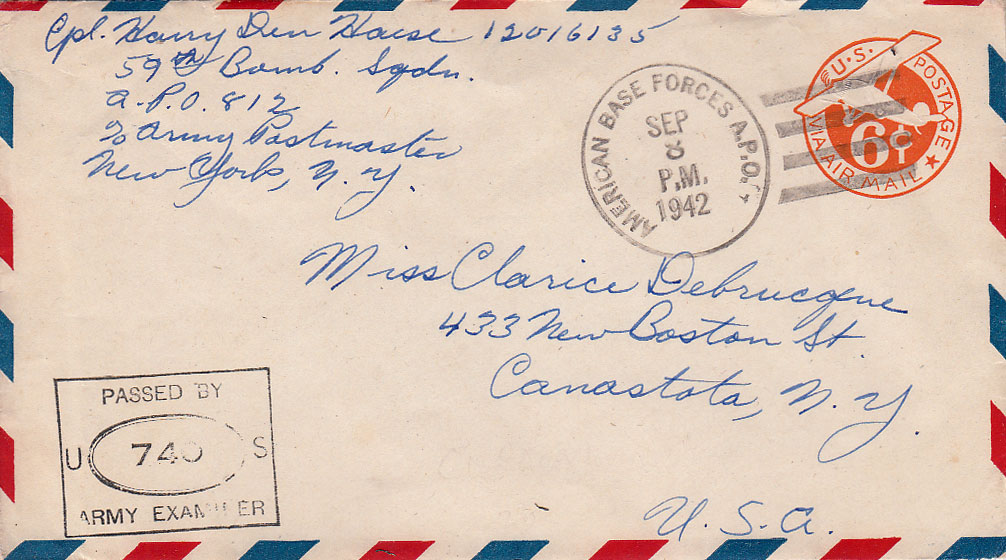 Cpl. Harry Den Haese 12016135
59th Bomb. Sqdn.
A.P.O. 812
% Army Postmaster
New York, N.Y.
AMERICAN BASE FORCES A.P.O.
SEP
8
P.M.
1942
U.S. POSTAGE
6¢
VIA AIR MAIL
Miss Clarice Debrucque
433 New Boston St.
Canastota, N.Y.
U.S.A.
PASSED BY
U 740 S
ARMY EXAMINER